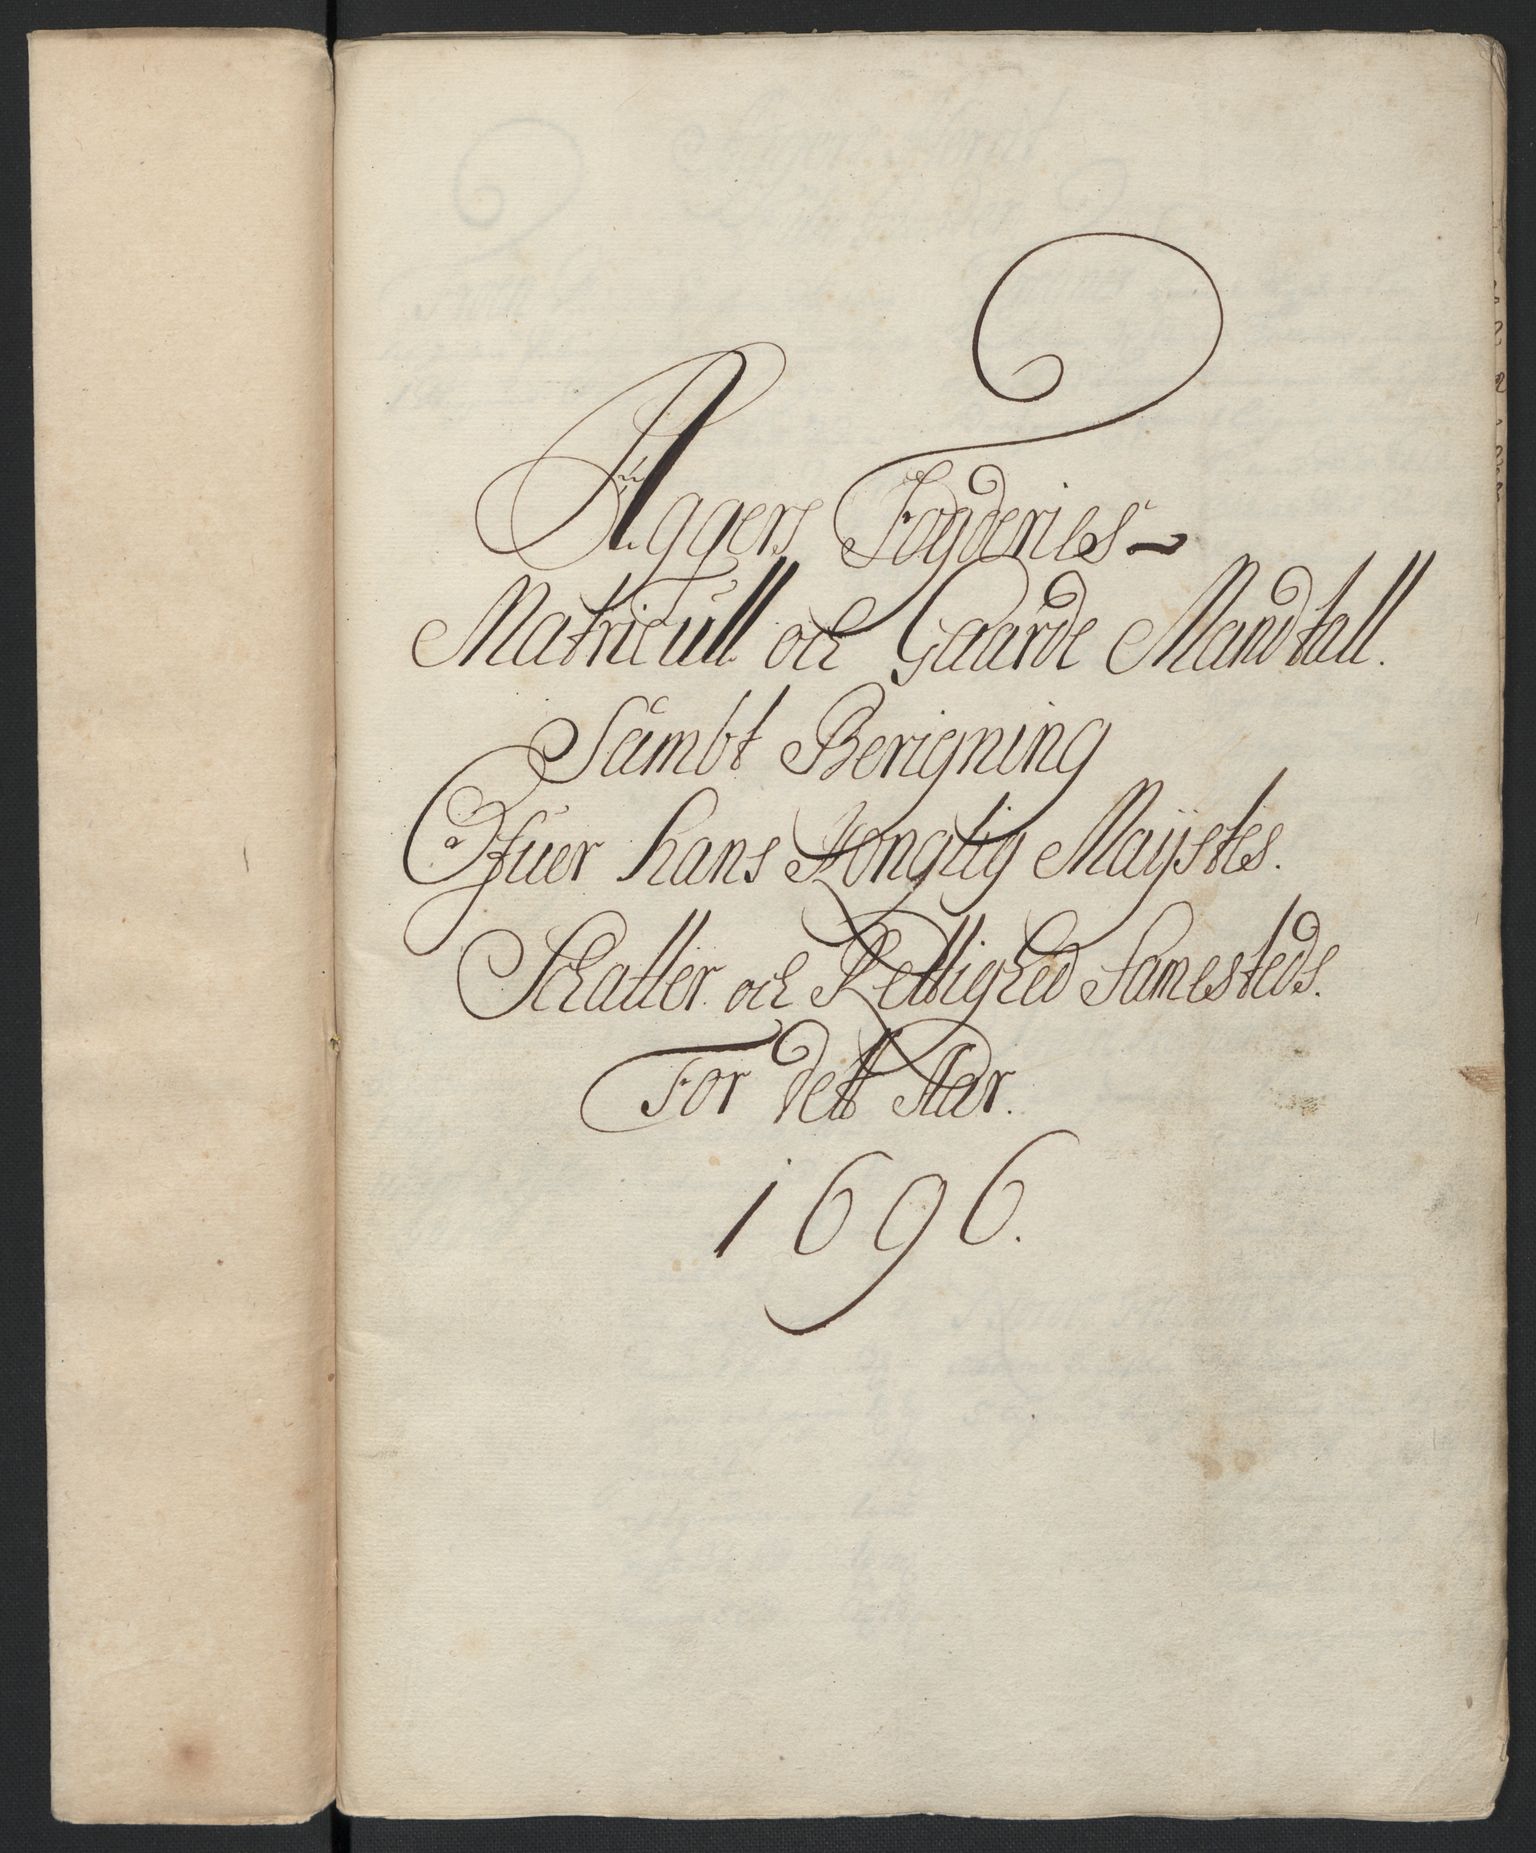 Aggers Fogderies-
Matricull och Gaarde Mandtall.
Sambt Berigning
Ofuer hans Kongllig Mayjstes.
Schatter och Rettighed Samesteds.
For dett Aar.
1696.